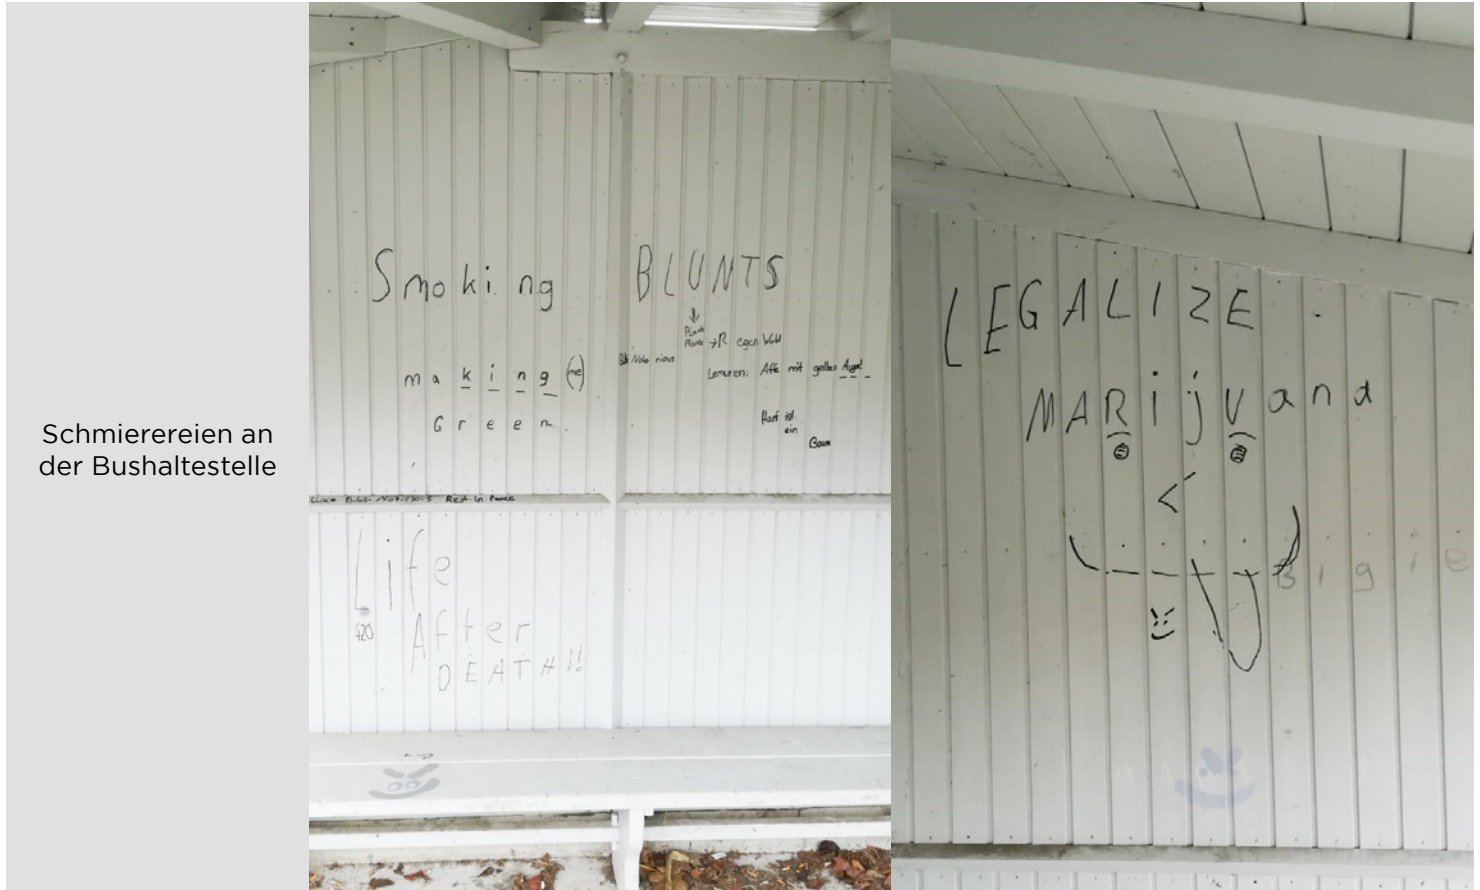 Schmierereien an
der Bushaltestelle
Smoking BLUNTS
Plants → R egen Wald
making (me)
Lemuren: Affe mit gelben
Green.
Hanf ist
ein
Baum
Rest In Peace
Life
420
After
DEATH!!
LEGALIZE
MARijUana
Bigie